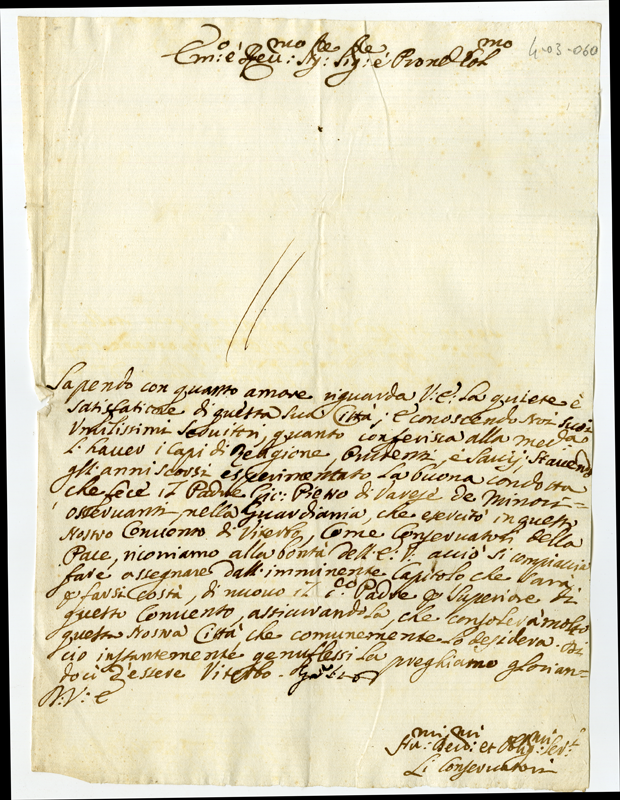 4-03-060
Em:o è Rev:mo Sig:re Sig:re è Prone Col:mo
Sapendo con quanto amore riguarda V: E: la quiete è
satisfatione di questa sua Città; è conoscendo Noi suoi
Umilissimi Servitri, quanto conferisca alla med:a
l'haver i Capi di Religione Prudenti, è Savij, et havendo
gl'anni scorsi esperimentato la buona condotta
che fece il Padre Gio: Pietro di Varese de Minori
osservanti nella Guardiania, che esercitò in questo
Nostro Convento di Viterbo, Come Conservatori della
Pace, ricorriamo alla bontà dell'E: V: acciò si compiaccia
fare assegnare dall'imminente Capitolo che sarà
p farsi Costà, di nuovo il d:o Padre p Superiore di
questo Convento, assicurandola, che consolerà molto
questa Nostra Città che comunemente lo desidera. Di
ciò instantemente genuflessi la preghiamo glorian-
doci d'essere Viterbo
D: V: E
Hu:mi Devo:mi et Oblig:mi Ser:ri
Li Conservatori